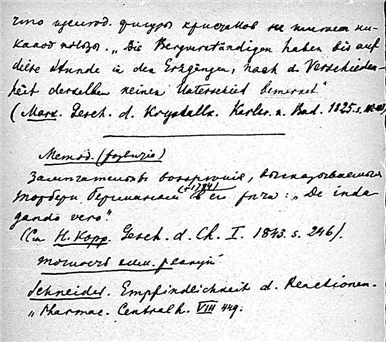 что исслед. фигуры кристаллов не имеет ни-
какой пользы. „Die Bergverständigen haben bis auf
diese Stunde in den Erzgängen, nach d. Verschieden-
heit derselben keinen Unterschied bemerket“
(Marx. Gesch. d. Krystallk. Karlsr. u. Bad. 1825. s.
Метод.
Замечательны воззрения, высказываемые
Торберн. Бергманом (+1784) в его речи: „De inda
gando vero“.
(См H. Kopp. Gesch. d. Ch. I. 1843. s. 246).
Точность хим. реакций
Schneider. Empfindlichkeit d. Reactionen.
„Pharmac. Centralh. VIII 449.